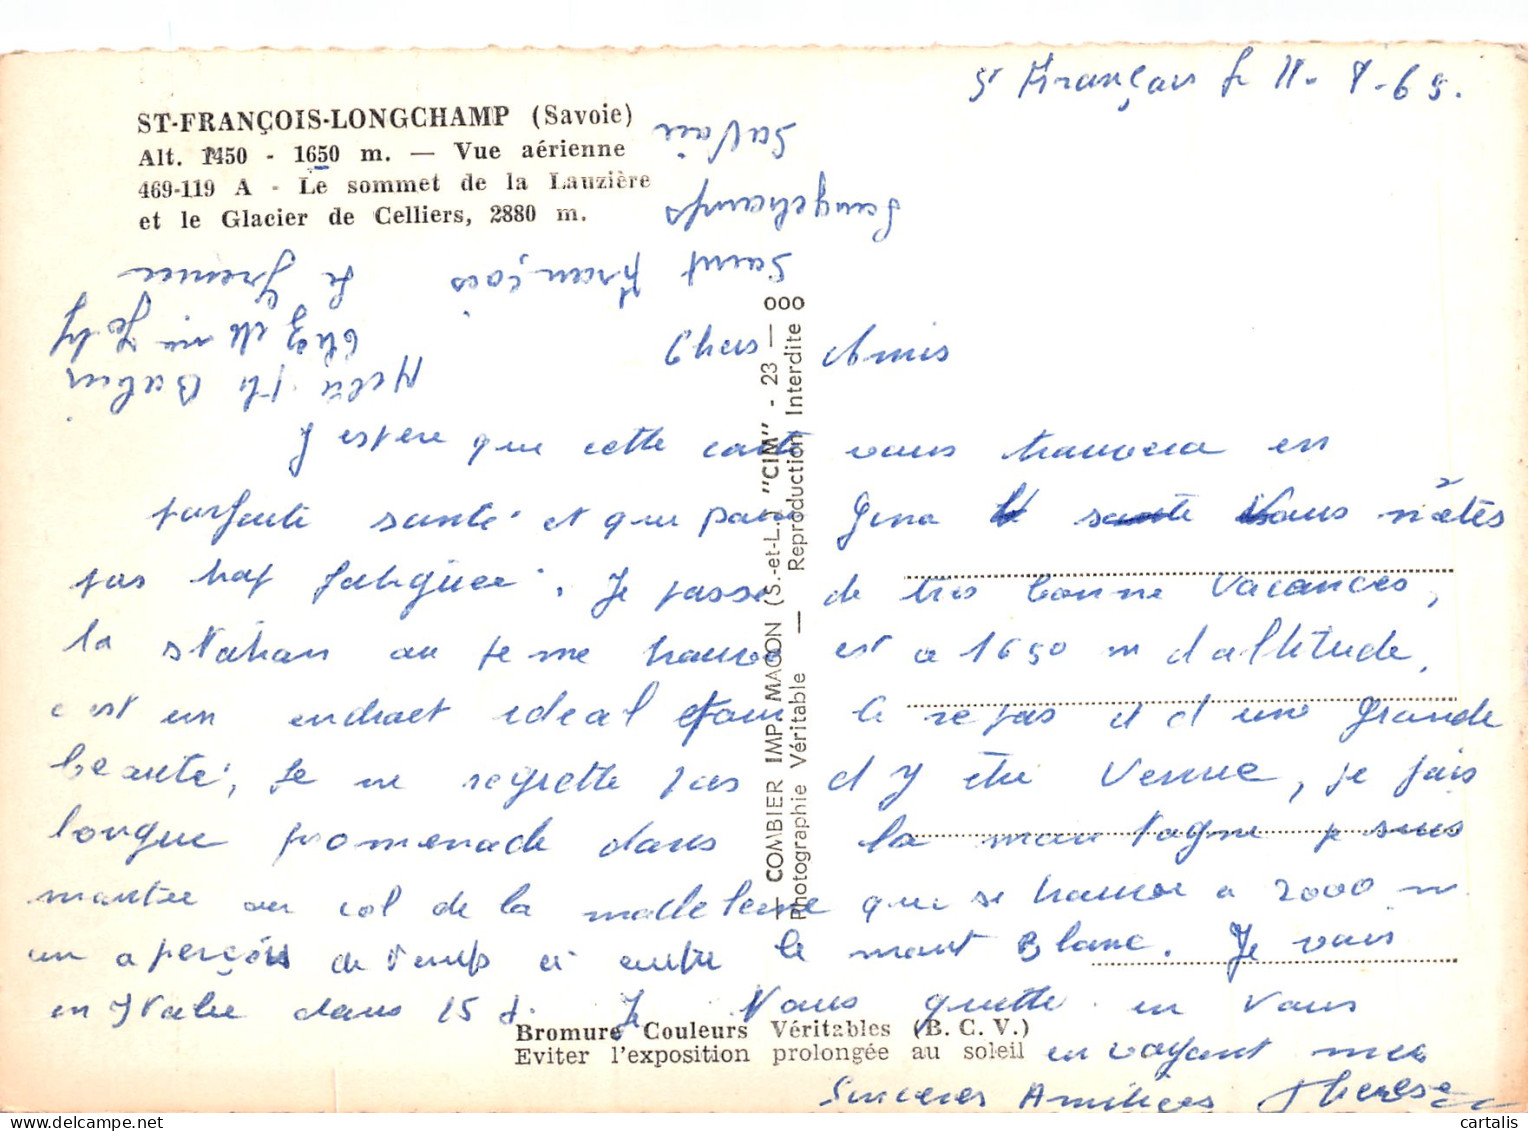 St François le 11-8-65.
ST-FRANÇOIS-LONGCHAMP (Savoie)
Alt. 1450 - 1650 m. — Vue aérienne
469-119 A - Le sommet de la Lauzière
et le Glacier de Celliers, 2880 m.
Chers Amis
J espere que cette carte vous trouvera en
parfaite santé et que pour Gina Vous n'ètès
pas trop fatiguée. Je passe de très bonne Vacances,
la station ou je me trouve est a 1650 m d altitude,
c est un endroit ideal pour le repos et d une Grande
beauté, Je ne regrette pas d y être Venue, je fais
longue promenade dans la montagne je suis
montée au col de la madeleine que se trouve a 2000 m
on aperçois de temps en autre le mont Blanc. Je vais
en Italie dans 15 J. Je Vous quitte en vous
en voyant mes
Sinceres Amitiées Therese
Saint François
Longchamps
Savoie
COMBIER IMP. MACON (S.-et-L.) "CIM" - 23 — ooo
Photographie Véritable — Reproduction Interdite
Bromure Couleurs Véritables (B. C. V.)
Eviter l'exposition prolongée au soleil
cartalis